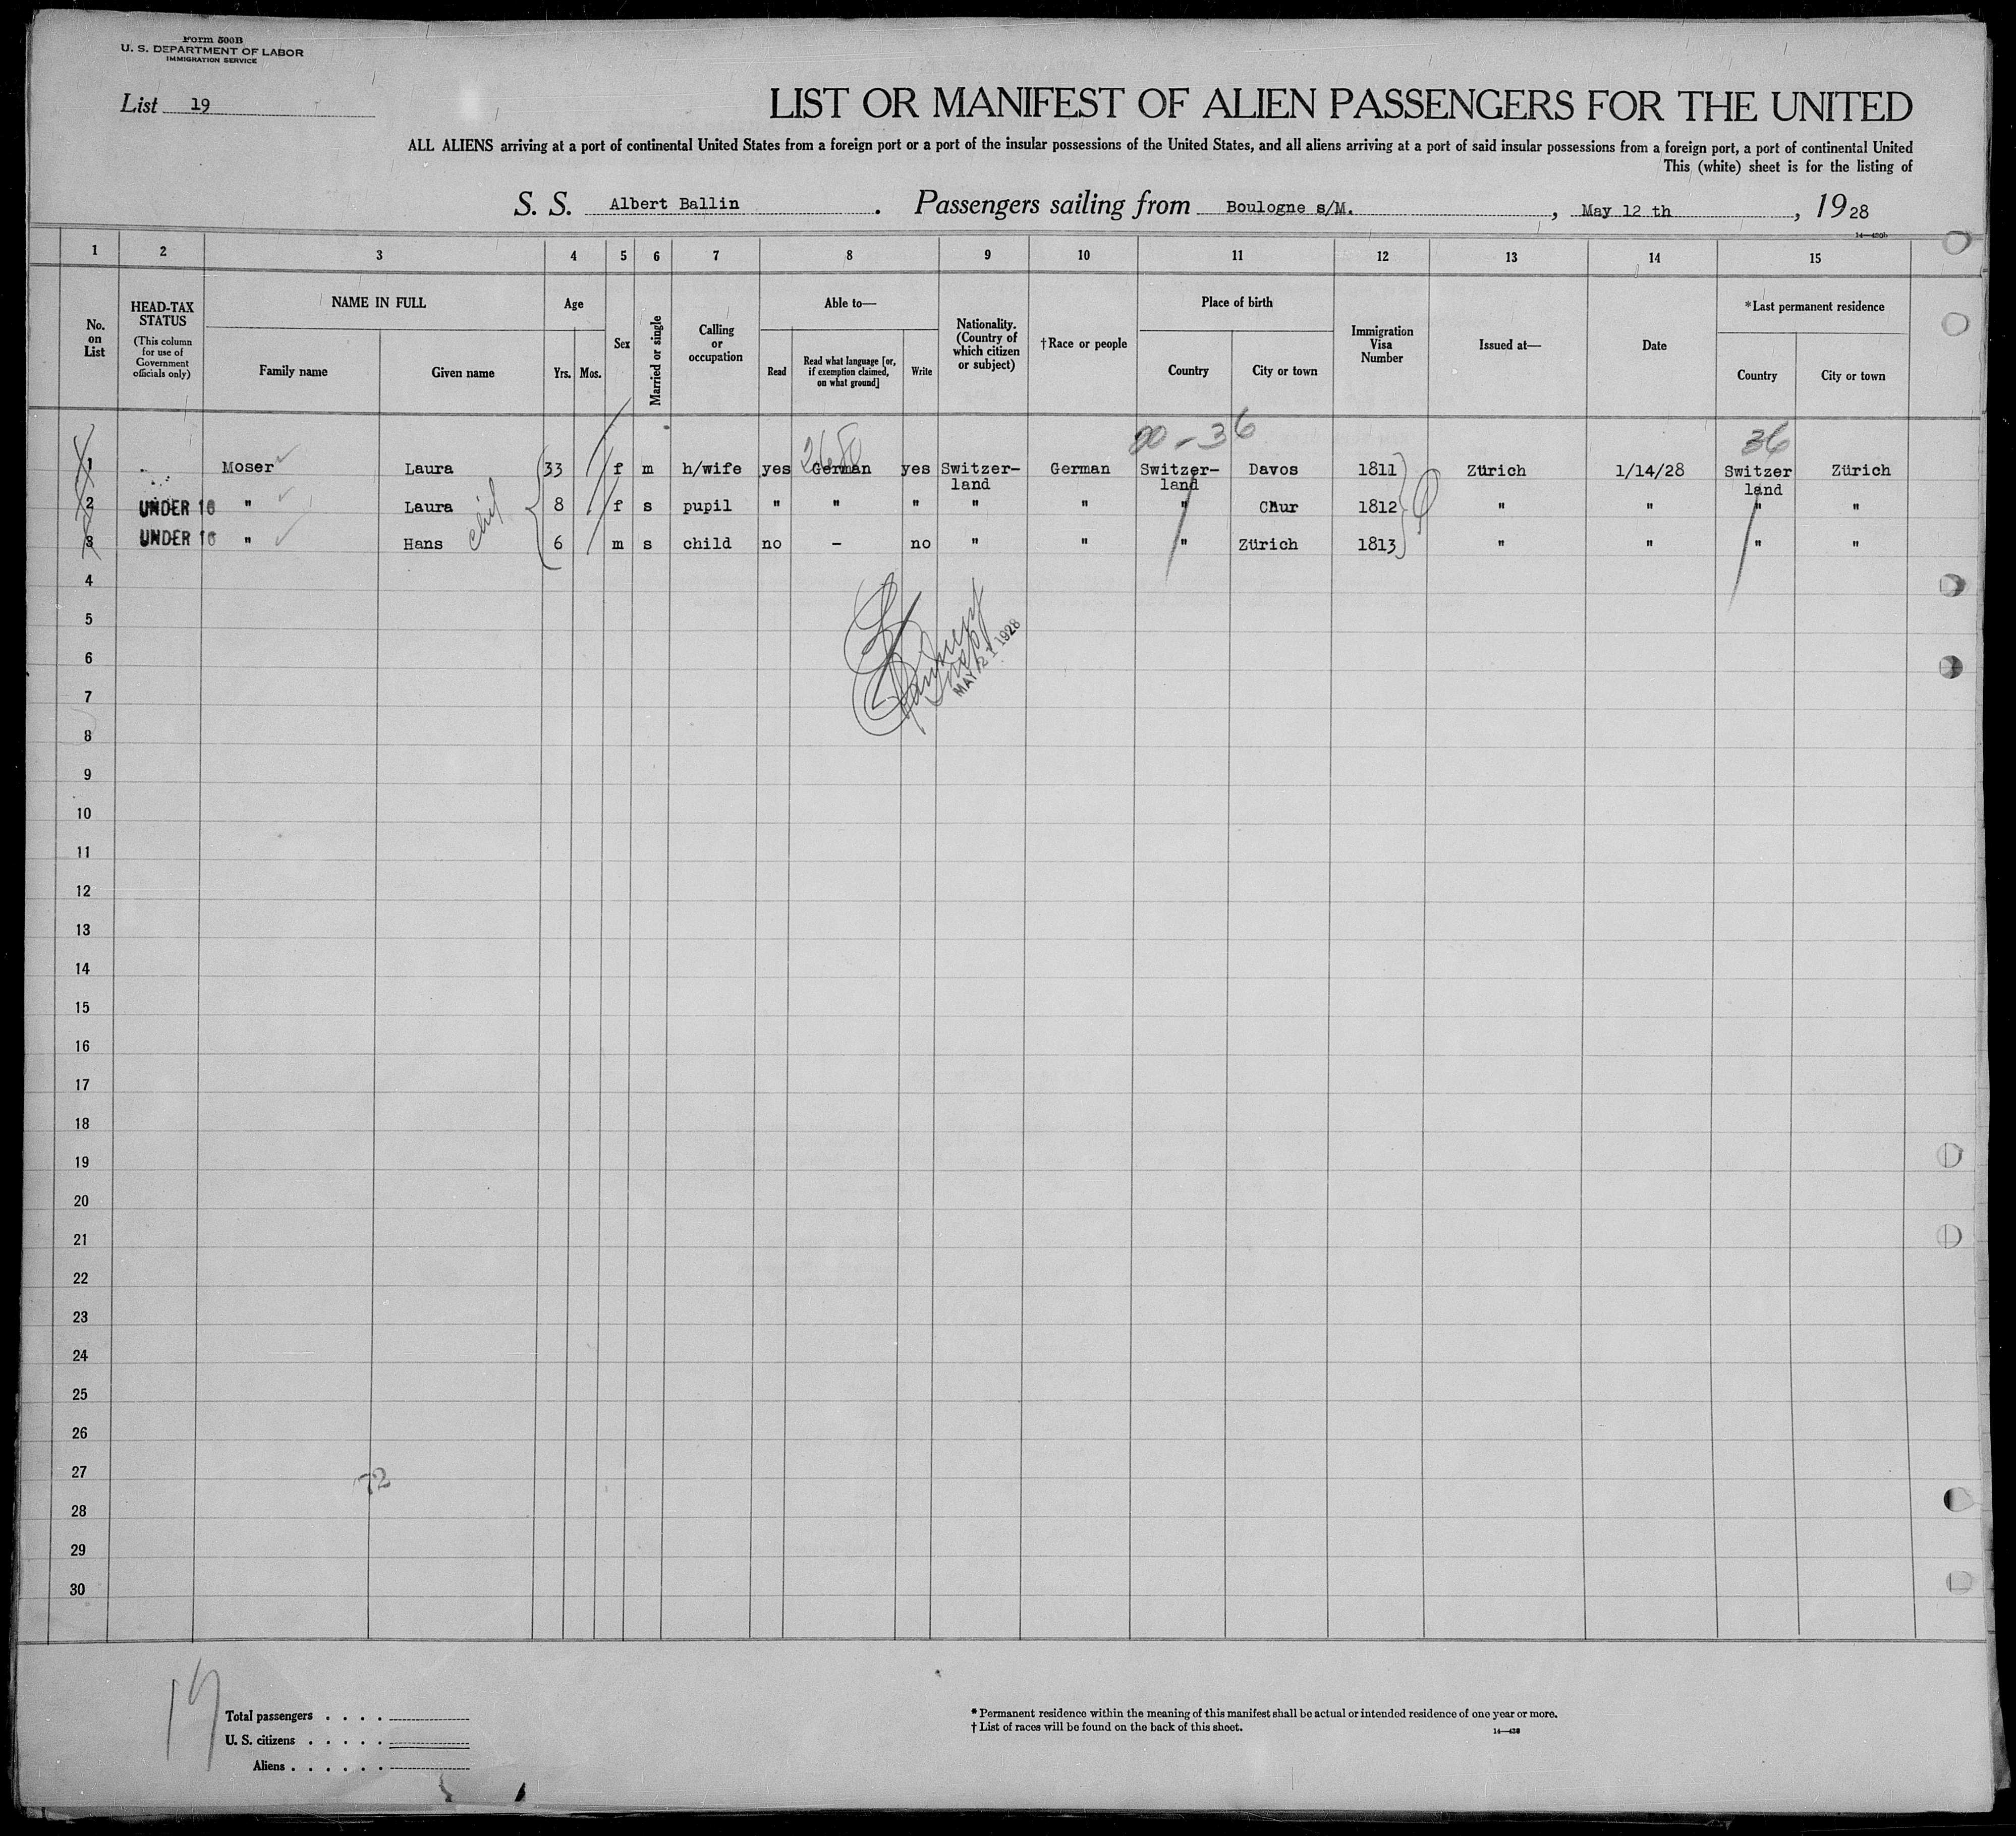 Form 500B
U. S. DEPARTMENT OF LABOR
IMMIGRATION SERVICE
List 19
LIST OR MANIFEST OF ALIEN PASSENGERS FOR THE UNITED
ALL ALIENS arriving at a port of continental United States from a foreign port or a port of the insular possessions of the United States, and all aliens arriving at a port of said insular possessions from a foreign port, a port of continental United
This (white) sheet is for the listing of
S. S. Albert Ballin . Passengers sailing from Boulogne s/M. , May 12 th , 1928
1 2 3 4 5 6 7 8 9 10 11 12 13 14 15
No. on List
HEAD-TAX STATUS
(This column for use of Government officials only)
NAME IN FULL
Family name
Given name
Age
Yrs.
Mos.
Sex
Married or single
Calling or occupation
Able to—
Read
Read what language [or, if exemption claimed, on what ground]
Write
Nationality. (Country of which citizen or subject)
†Race or people
Place of birth
Country
City or town
Immigration Visa Number
Issued at—
Date
*Last permanent residence
Country
City or town
00-36 36
1 Moser Laura 33 f m h/wife yes German yes Switzer- German Switzer- Davos 1811 Zürich 1/14/28 Switzer Zürich
land land land
2 UNDER 16 " Laura 8 f s pupil " " " " " " Chur 1812 " " " "
3 UNDER 16 " Hans 6 m s child no – no " " " Zürich 1813 " " " "
4
5
6
MAY 21 1928
7
8
9
10
11
12
13
14
15
16
17
18
19
20
21
22
23
24
25
26
27
72
28
29
30
19
Total passengers . . . .
U. S. citizens . . . . .
Aliens . . . . . .
* Permanent residence within the meaning of this manifest shall be actual or intended residence of one year or more.
† List of races will be found on the back of this sheet.